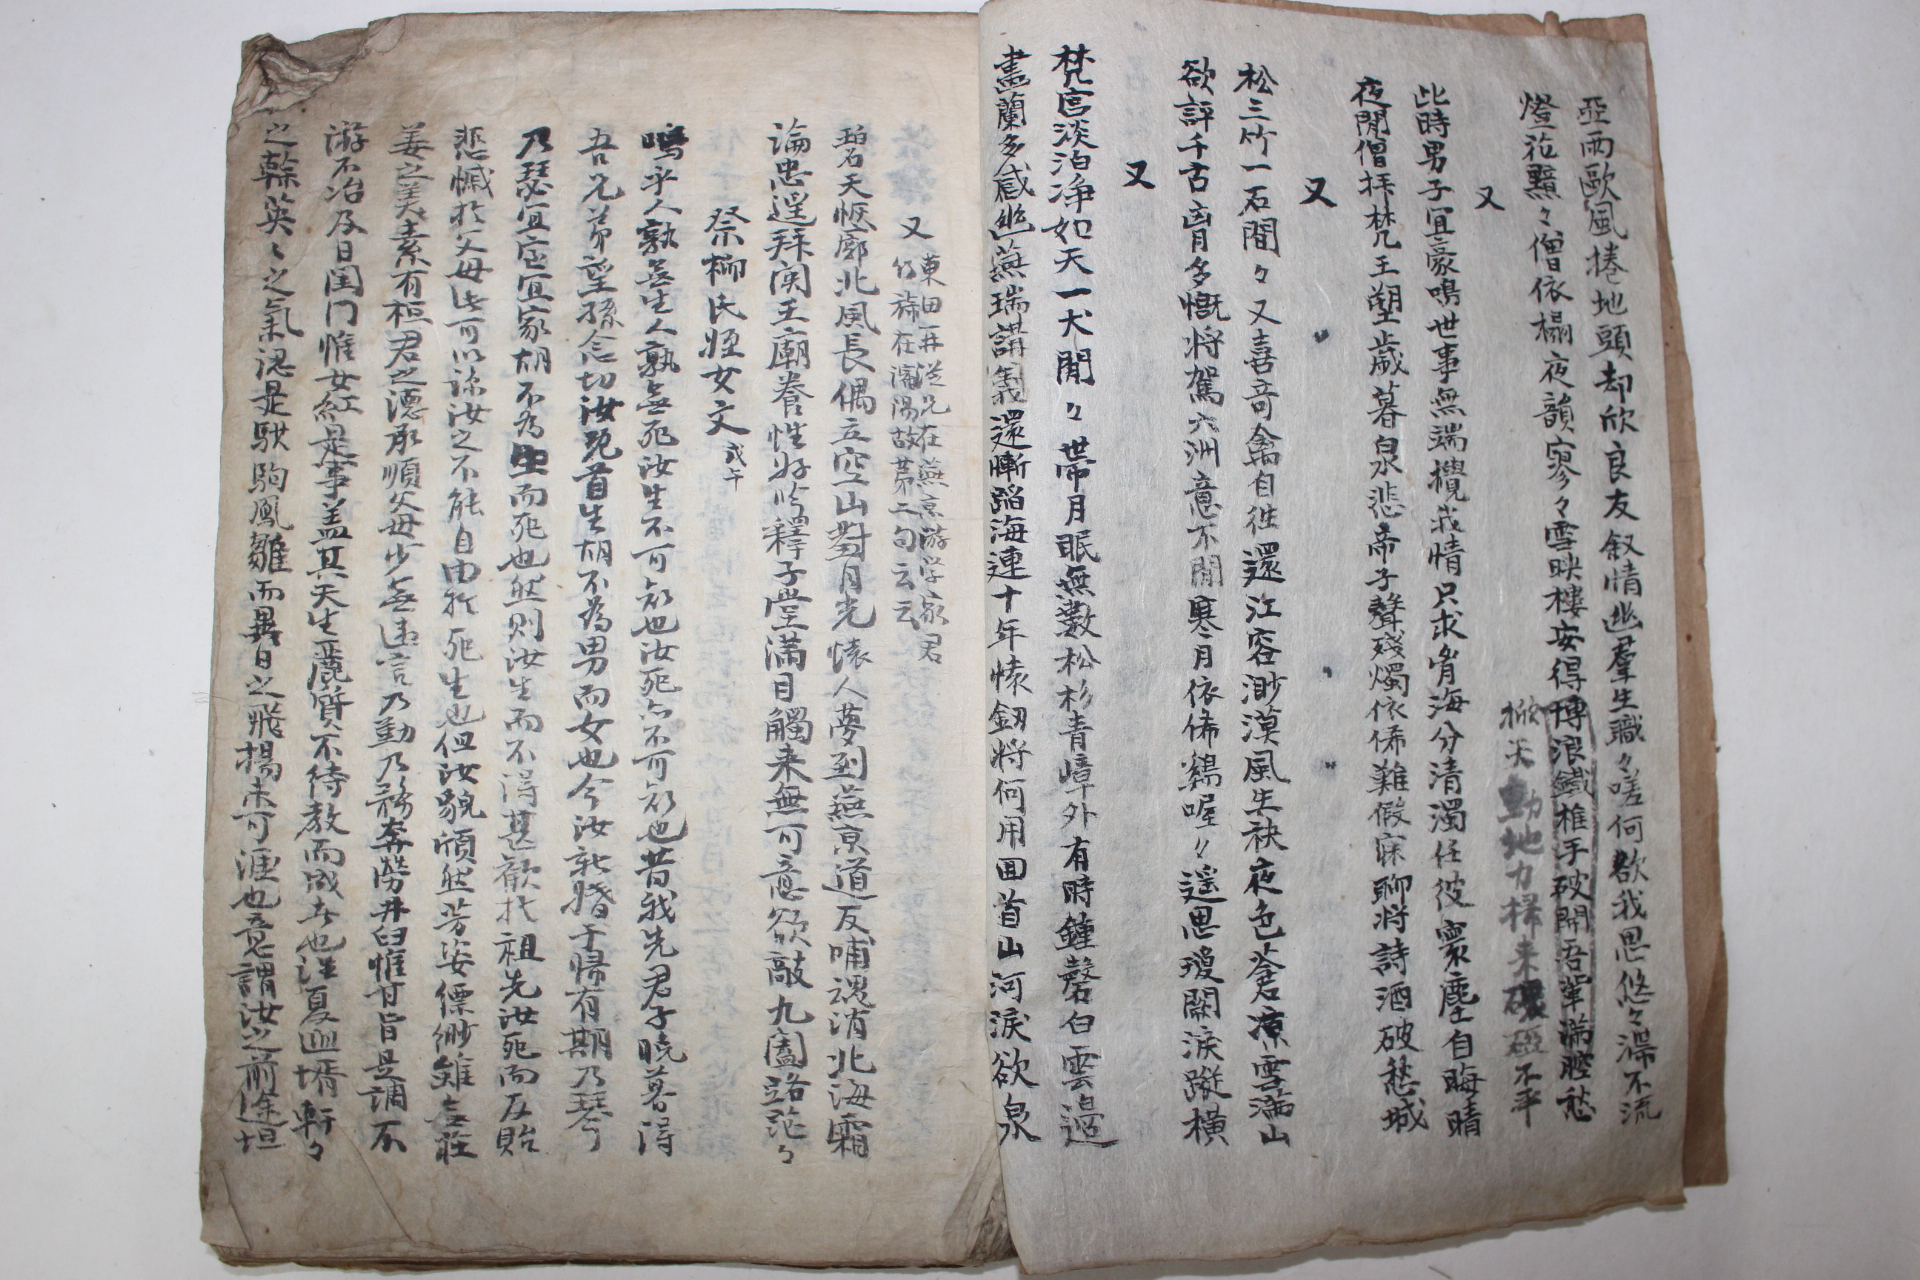 亞雨歐風捲地頭却欣良友叙情幽羣生職々嗟何欲我思悠々滯不流
燈花黯々僧依榻夜韻寥々雪映樓安得博浪鐵椎手破開吾輩滿腔愁
掀天動地力揮来磯磁不平
又
此時男子宜豪鳴世事無端攪我情只求肯海分清濁任彼寰塵自晦晴
夜閒僧拝梵王塑歲暮泉悲帝子聲殘燭依俙難假寐聊将詩酒破愁城
又
松三竹一石間々又喜奇禽自徃還江容渺漠風生袂夜色蒼凉雪滿山
欲評千古胷多慨将駕六洲意不閒寒月依俙鷄喔々遥思瓊闕淚蹤橫
又
梵宮淡泊净如天一犬閒々帶月眠無數松杉青嶂外有時鍾磬白雲邊
盡蘭多感幽燕瑞講義還慚蹈海連十年懷釰将何用回首山河淚欲泉
又
東田再從兄在燕京游学家君
仍旅在瀋陽故第二句云云
碧天恢廓北風長偶立空山對月光懷人夢到燕京道反哺魂消北海霜
論忠遑拜関王廟養性好吟釋子堂滿目觸来無可意欲敲九闔路茫々
祭柳氏姪女文 戊午
嗚乎人孰無生人孰無死汝生不可知也汝死亦不可知也昔我先君子曉暮得
吾兄弟望孫念切汝旣首生胡不為男而女也今汝新婚于歸有期乃琴
乃瑟宜室宜家胡不為生而死也然則汝生而不得甚歡扵祖先汝死而反貽
悲慽扵父母此可以諒汝之不能自由扵死生也但汝貌頎然芳姿縹緲雖無莊
姜之美素有桓君之德承順父母少無違言乃勤乃務奔勞井臼惟甘旨是調不
游不冶及日閨門惟女紅是事盖其天生麗質不待教而成者也汪夏血壻軒々
之榦英々之氣認是驥駒鳳雛而異日之飛揚未可涯也竟謂汝之前途坦